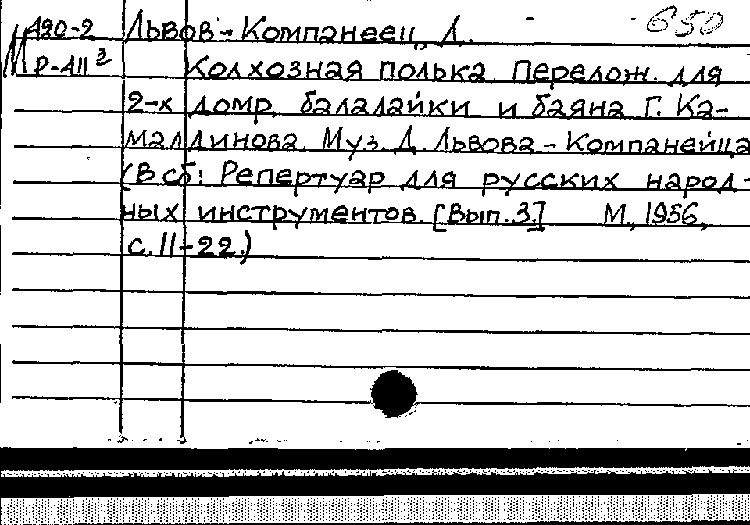 А20-2 Львов-Компанеец, Д. 650
М Р-411³ Колхозная полька. Перелож. для
2-х домр, балалайки и баяна Г. Ка-
малдинова. Муз. Д. Львова-Компанейца
(В сб: Репертуар для русских народ-
ных инструментов. [Вып. 3.] М., 1956,
с. 11-22.)